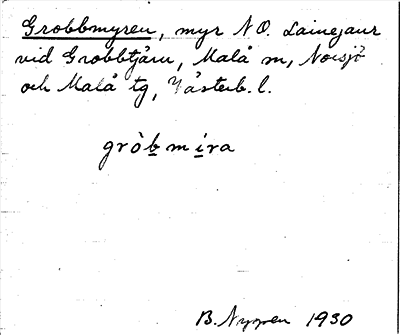 Grobbmyren, myr N O. Lainejaur
vid Grobbtjärn, Malå m, Norsjö
och Malå tg, Västerb. l.
gròb̲mi̲ra
B. Nyppen 1930